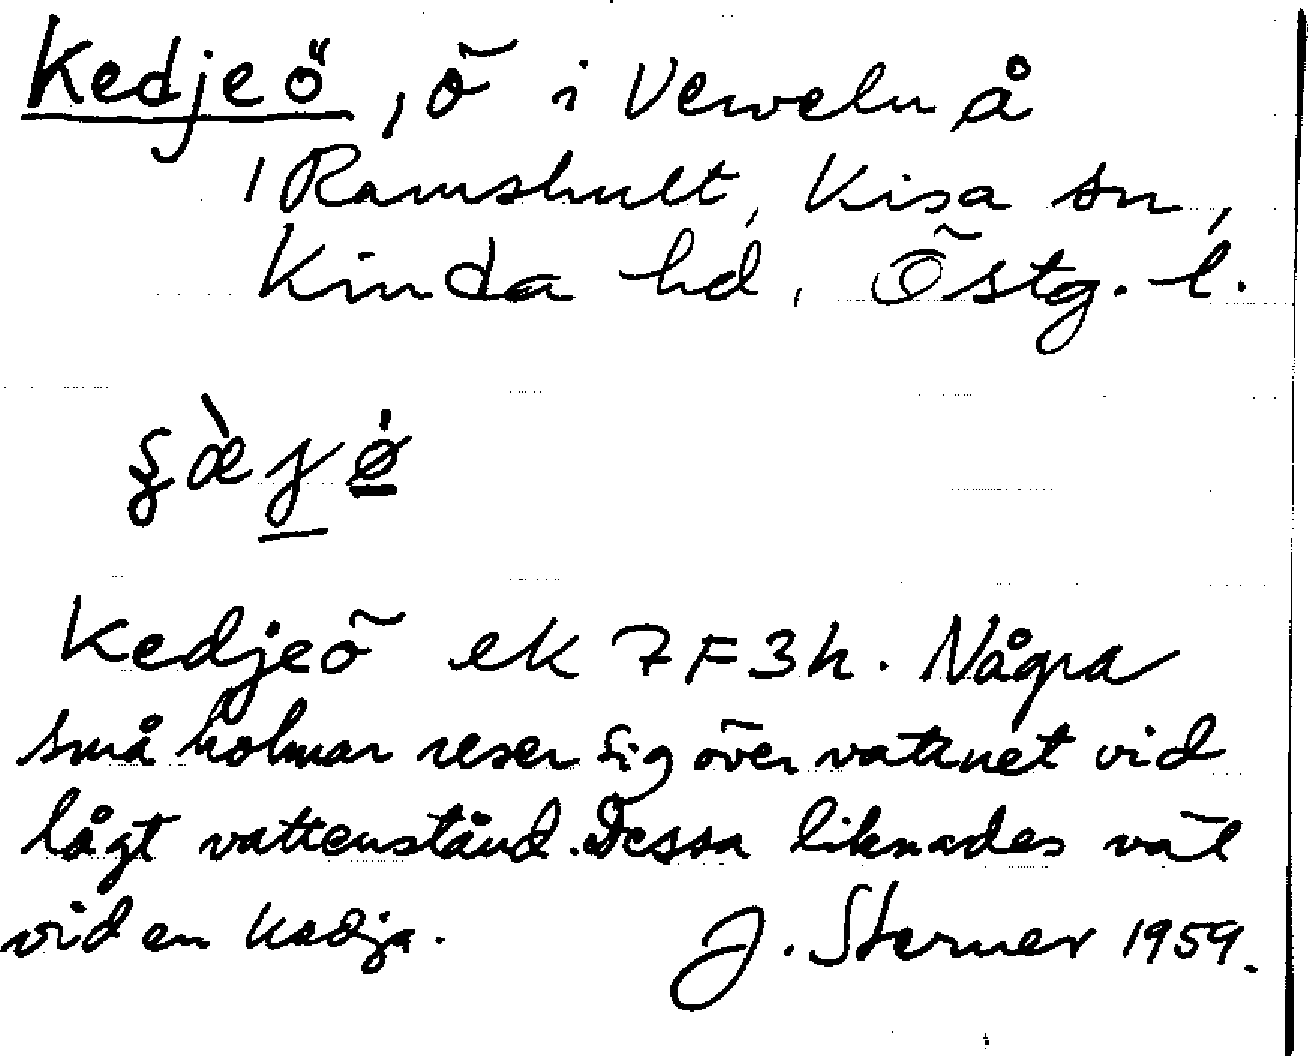 Kedjeö, ö i Vervelnå
i Ramshult, Kisa sn,
Kinda hd, Östg. l.
Kedjeö ek 7F3h. Några
små holmar reser sig över vattnet vid
lågt vattenstånd. Dessa liknades väl
vid en kedja. J. Sterner 1959.